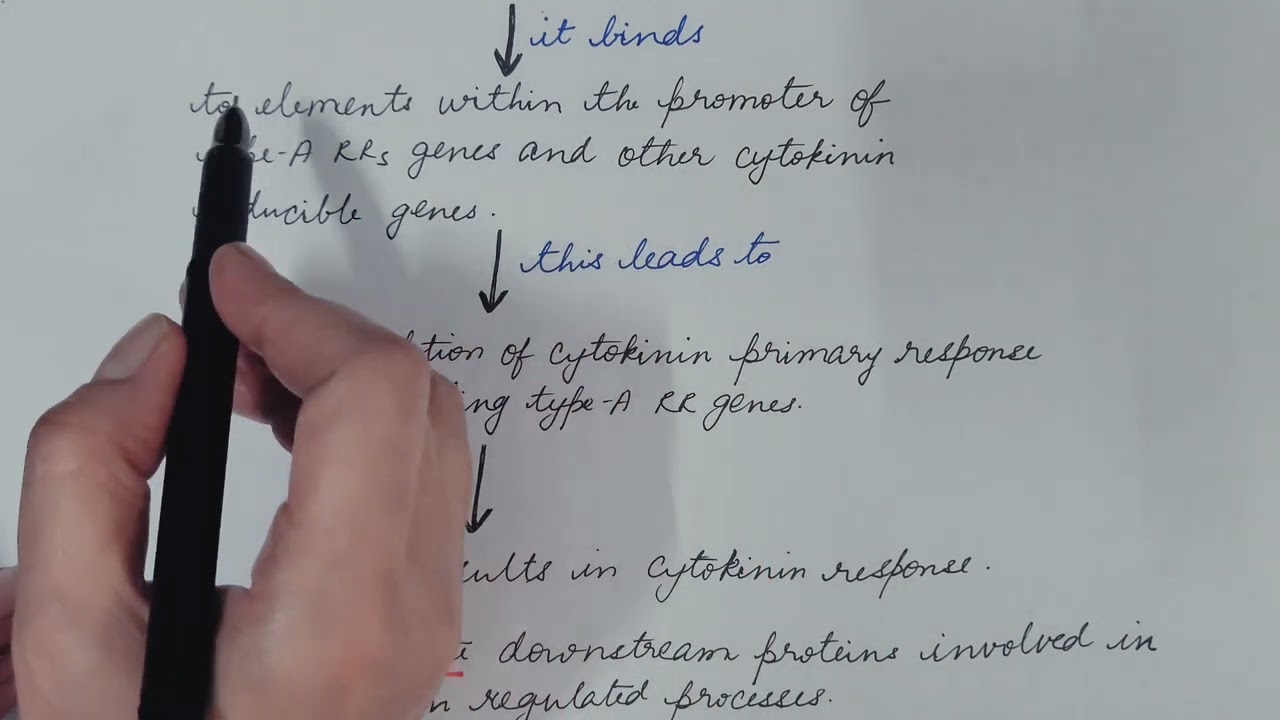 it binds
to elements within the promoter of
-A RRs genes and other cytokinin
genes.
this leads to
of cytokinin primary response
type-A RR genes.
in cytokinin response.
downstream proteins involved in
regulated processes.